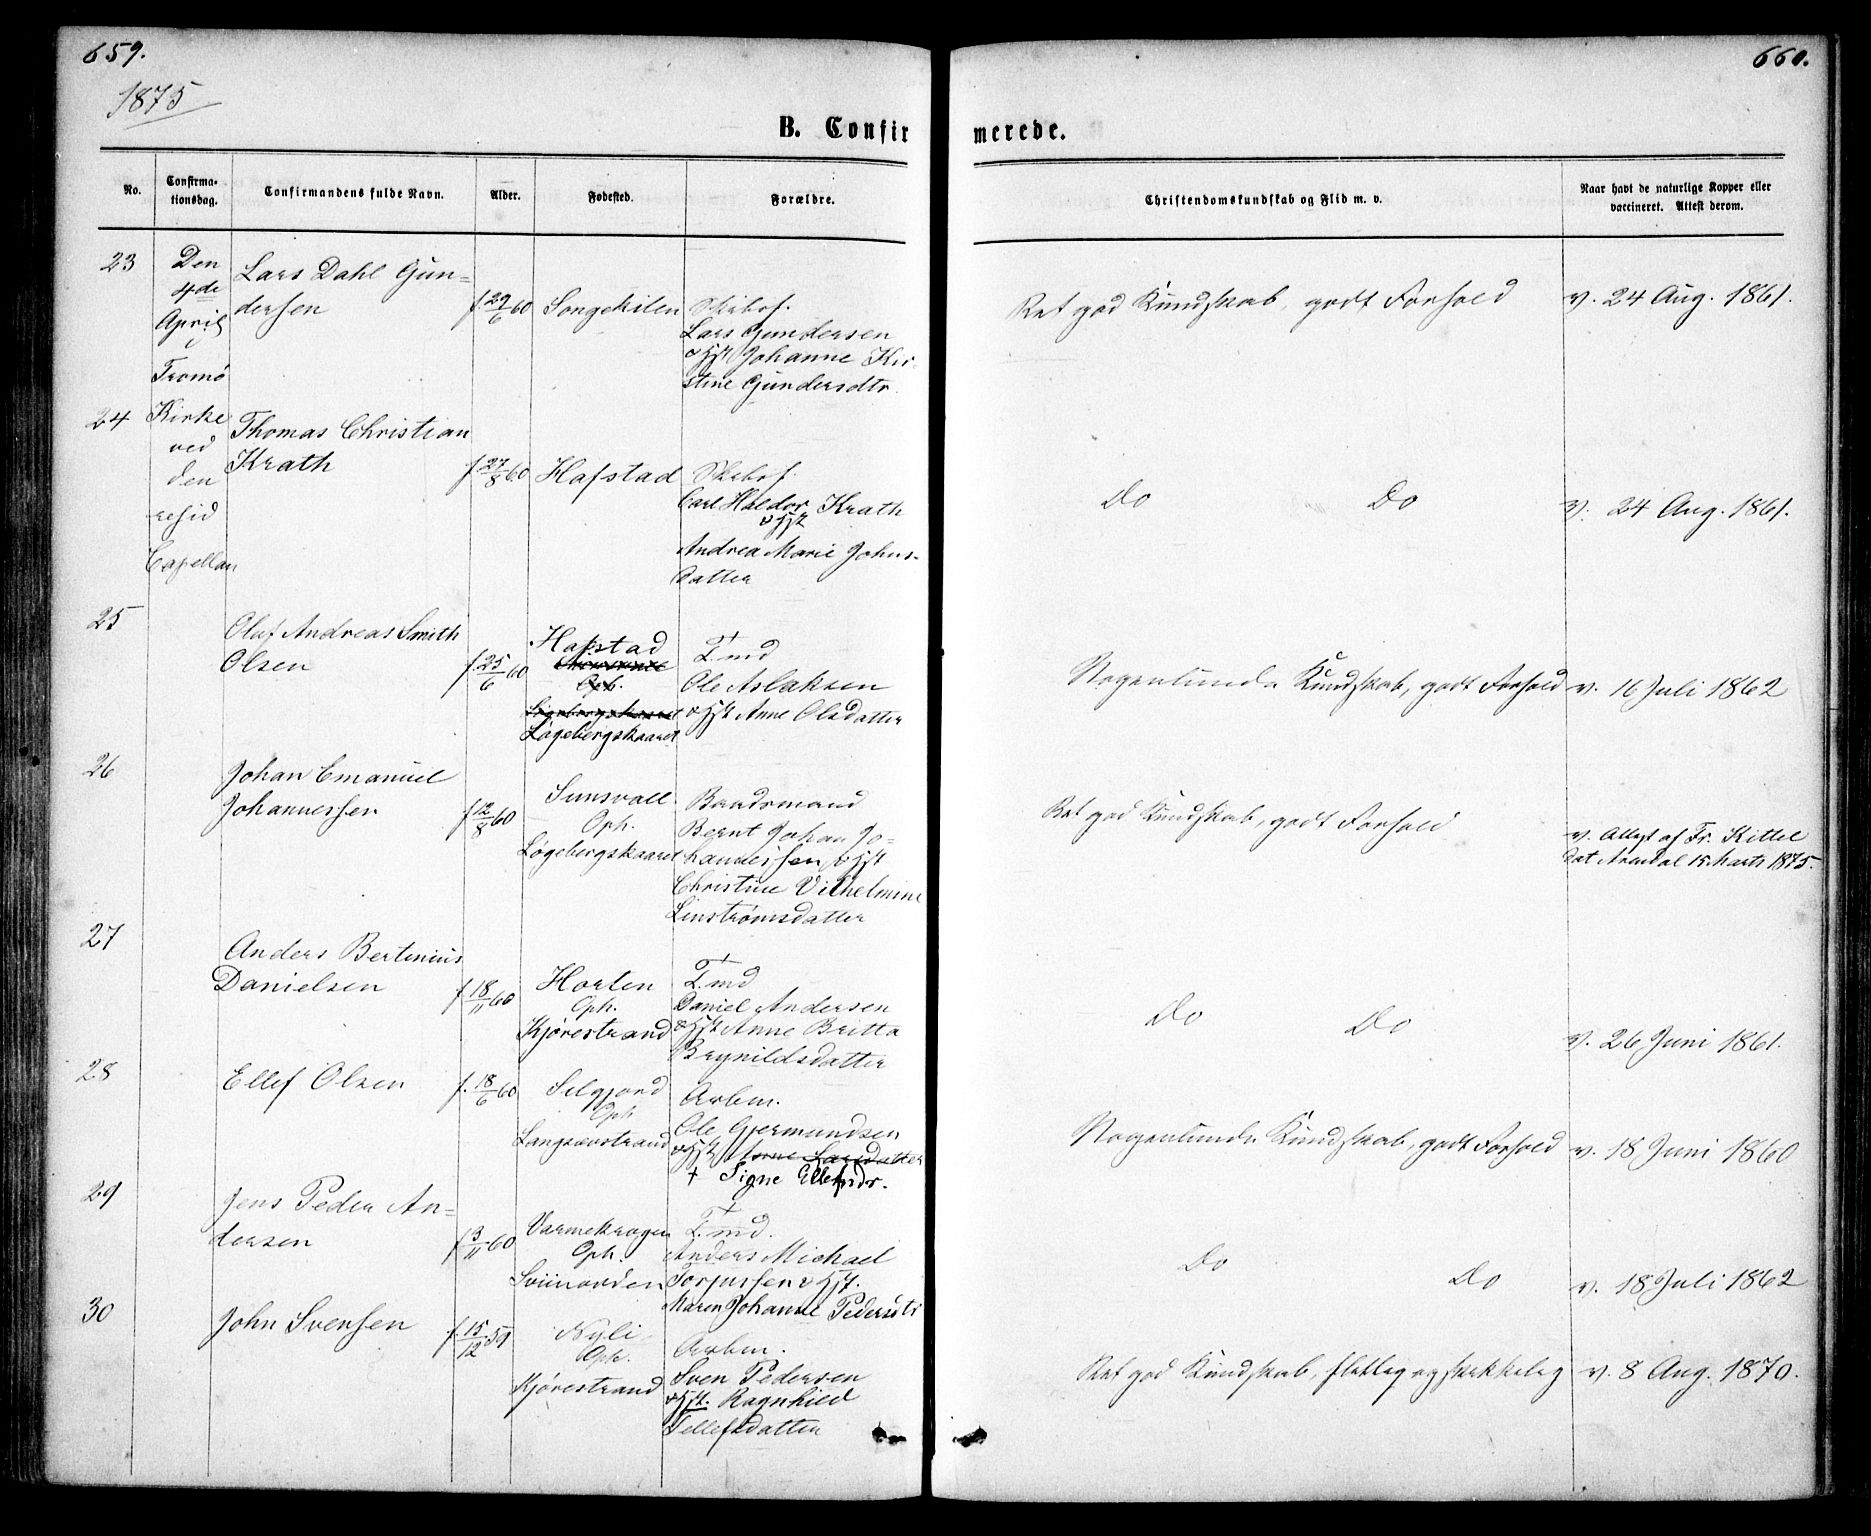 659.
660.
1875
B. Confirmerede.
No.
Confirmationsdag.
Confirmandens fulde Navn.
Alder.
Fødested.
Forældre.
Christendomskundskab og Flid m. v.
Naar havt de naturlige Kopper eller
vaccineret. Attest derom.
Den
4de
April
i
Tromø
Kirke
ved
den
resid
Capellan
23
Lars Dahl Gun=
dersen
f. 29/6 60
Songekilen
Skibsf.
Lars Gundersen
o Hst Johanne Kir-
stine Gundersdtr.
Ret god Kundskab, godt Forhold
v. 24 Aug. 1861.
24
Thomas Christian
Krath
f. 27/8 60
Hafstad
Skibsf.
Carl Haldor Krath
o Hst
Andrea Marie Johns-
datter
Do Do
v. 24 Aug. 1861.
25
Oluf Andreas Smith
Olsen
f. 25/6 60
Hafstad
Oph.
Løgebergskaaret
T.md
Ole Aslaksen
o Hst Anne Olsdatter
Nogenlunde Kundskab, godt Forhold
v. 16 Juli 1862
26
Johan Emanuel
Johannessen
f. 12/8 60
Sunsvall
Oph.
Løgebergskaaret
Baadsmand
Bernt Johan Jo-
hannessen o Hst
Christine Vilhelmine
Linstrømsdatter
Ret god Kundskab, godt Forhold
v. Attest af Fr. Kittel
dat Arendal 15 Marts 1875.
27
Anders Bertinius
Danielsen
f. 18/11 60
Horten
Oph.
Kjørestrand
T.md
Daniel Andersen
o Hst Anne Britta
Brynildsdatter
Do Do
v. 26 Juni 1861.
28
Ellef Olsen
f. 18/6 60
Selgjord
Oph
Langsævstrand
Arbm.
Ole Gjermundsen
o Hst Larsdatter
+ Signe Ellefsdr.
Nogenlunde Kundskab, godt Forhold
v. 18 Juni 1860
29
Jens Peder An=
dersen
f. 3/11 60
Varmekrogen
Oph.
Sviinodden
T.md.
Anders Michael
Torjussen o Hst.
Maren Johanne Pedersdtr
Do Do
v. 18 Juli 1862
30
John Svensen
f. 15/12 59
Nyli
Oph.
Kjørestrand
Arbm.
Sven Pedersen
o Hst. Ragnhild
Tellefsdatter
Ret god Kundskab, flittig og skikkelig
v. 8 Aug. 1870.